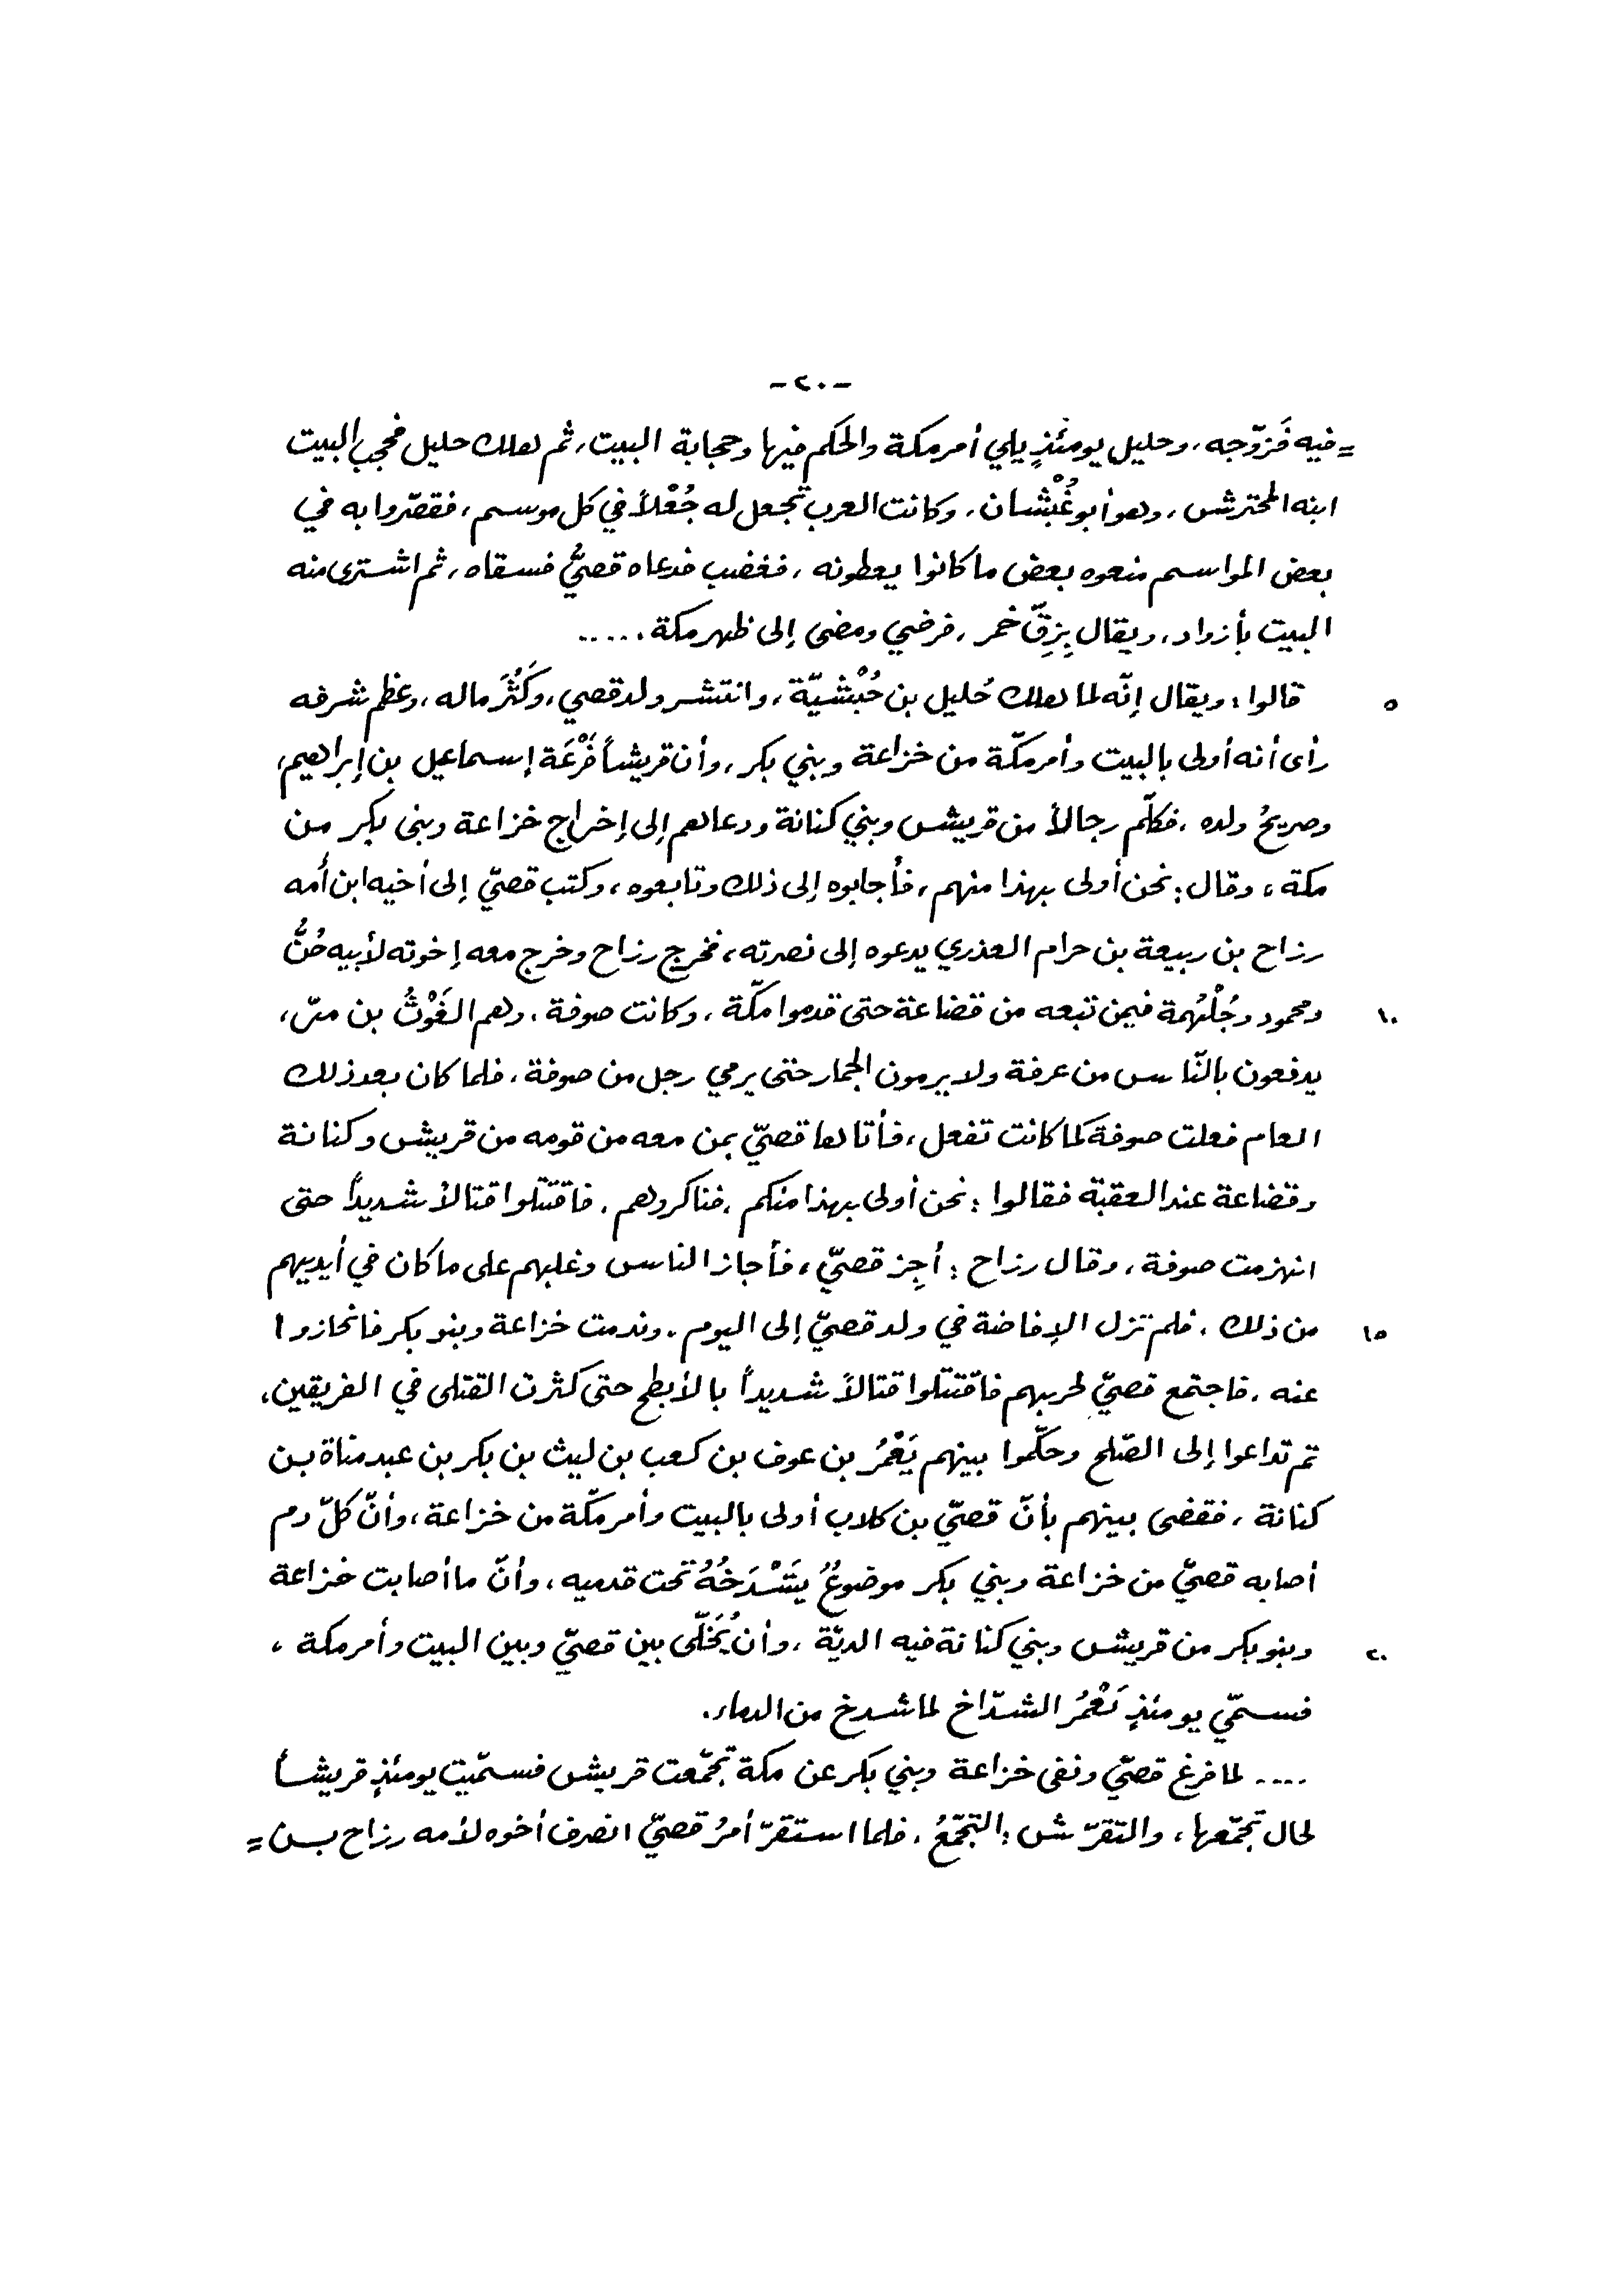 -٢٠-
= فيه فَزوّجه، وحليل يومئذٍ يلي أمر مكة والحكم فيها وحجابة البيت، ثم هلك حليل فحجب البيت
ابنه المحترش، وهو أبو غُبْشان، وكانت العرب تجعل له جُعْلاً في كل موسم، فقصّروا به في
بعض المواسم منعوه بعض ما كانوا يعطونه، فغضب فدعاه قصيُّ فسقاه، ثم اشترى منه
البيت بأزواد، ويقال بِزِقّ خمر، فرضي ومضى إلى ظهر مكة.....
قالوا: ويقال إنّه لما هلك حُليل بن حُبْشيّة، وانتشر ولد قصي، وكَثُرَ ماله، وعظم شرفه ٥
رأى أنه أولى بالبيت وأمر مكّة من خزاعة وبني بكر، وأن قريشاً فَرْعَة إسماعيل بن إبراهيم،
وصريحُ ولده، فكلّم رجالاً من قريش وبني كنانة ودعاهم إلى إخراج خزاعة وبني بكر من
مكة، وقال: نحن أولى بهذا منهم، فأجابوه إلى ذلك وتابعوه، وكتب قصيّ إلى أخيه ابن أُمه
رزاح بن ربيعة بن حرام العذري يدعوه إلى نصرته، فخرج رزاح وخرج معه إخوته لأبيه حُنُّ
ومحمود وجُلْهُمة فيمن تبعه من قضاعة حتى قدموا مكّة، وكانت صوفة، وهم الغَوْثُ بن مرّ، ١٠
يدفعون بالنّاس من عرفة ولا يرمون الجمار حتى يرمي رجل من صوفة، فلما كان بعد ذلك
العام فعلت صوفة كما كانت تفعل، فأتاها قصيّ بمن معه من قومه من قريش وكنانة
وقضاعة عند العقبة فقالوا: نحن أولى بهذا منكم، فناكروهم، فاقتتلوا قتالاً شديداً حتى
انهزمت صوفة، وقال رزاح: أجِز قصيّ، فأجاز الناس وغلبهم على ما كان في أيديهم
من ذلك، فلم تزل الإفاضة في ولد قصيّ إلى اليوم. وندمت خزاعة وبنو بكر فانحازوا ١٥
عنه، فاجتمع قصيّ لحربهم فاقتتلوا قتالاً شديداً بالأبطح حتى كثرت القتلى في الفريقين،
تم تداعوا إلى الصّلح وحكّموا بينهم يَعْمُرَ بن عوف بن كعب بن ليث بن بكر بن عبد مناة بن
كنانة، فقضى بينهم بأنّ قصيّ بن كلاب أولى بالبيت وأمر مكّة من خزاعة، وأنّ كلّ دم
أصابه قصيّ من خزاعة وبني بكر موضوعُ يَتَشْدَخُهُ تحت قدميه، وأنّ ما أصابت خزاعة
وبنو بكر من قريش وبني كنانة فيه الديّة، وأن يُخَلّى بين قصيّ وبين البيت وأمر مكة، ٢٠
فسمّي يومئذٍ يَعْمُرُ الشدّاخ لما شدخ من الدماء.
.... لما فرغ قصيّ ونفى خزاعة وبني بكر عن مكة تجمّعت قريش فسمّيت يومئذٍ قريشاً
لحال تجمّعها، والتقرّش: التجمّعُ، فلما استقرّ أمرُ قصيّ انصرف أخوه لأمه رزاح بن =